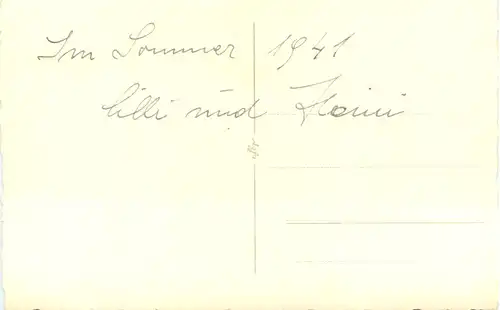 Im Sommer 1941
Cilli und Heini